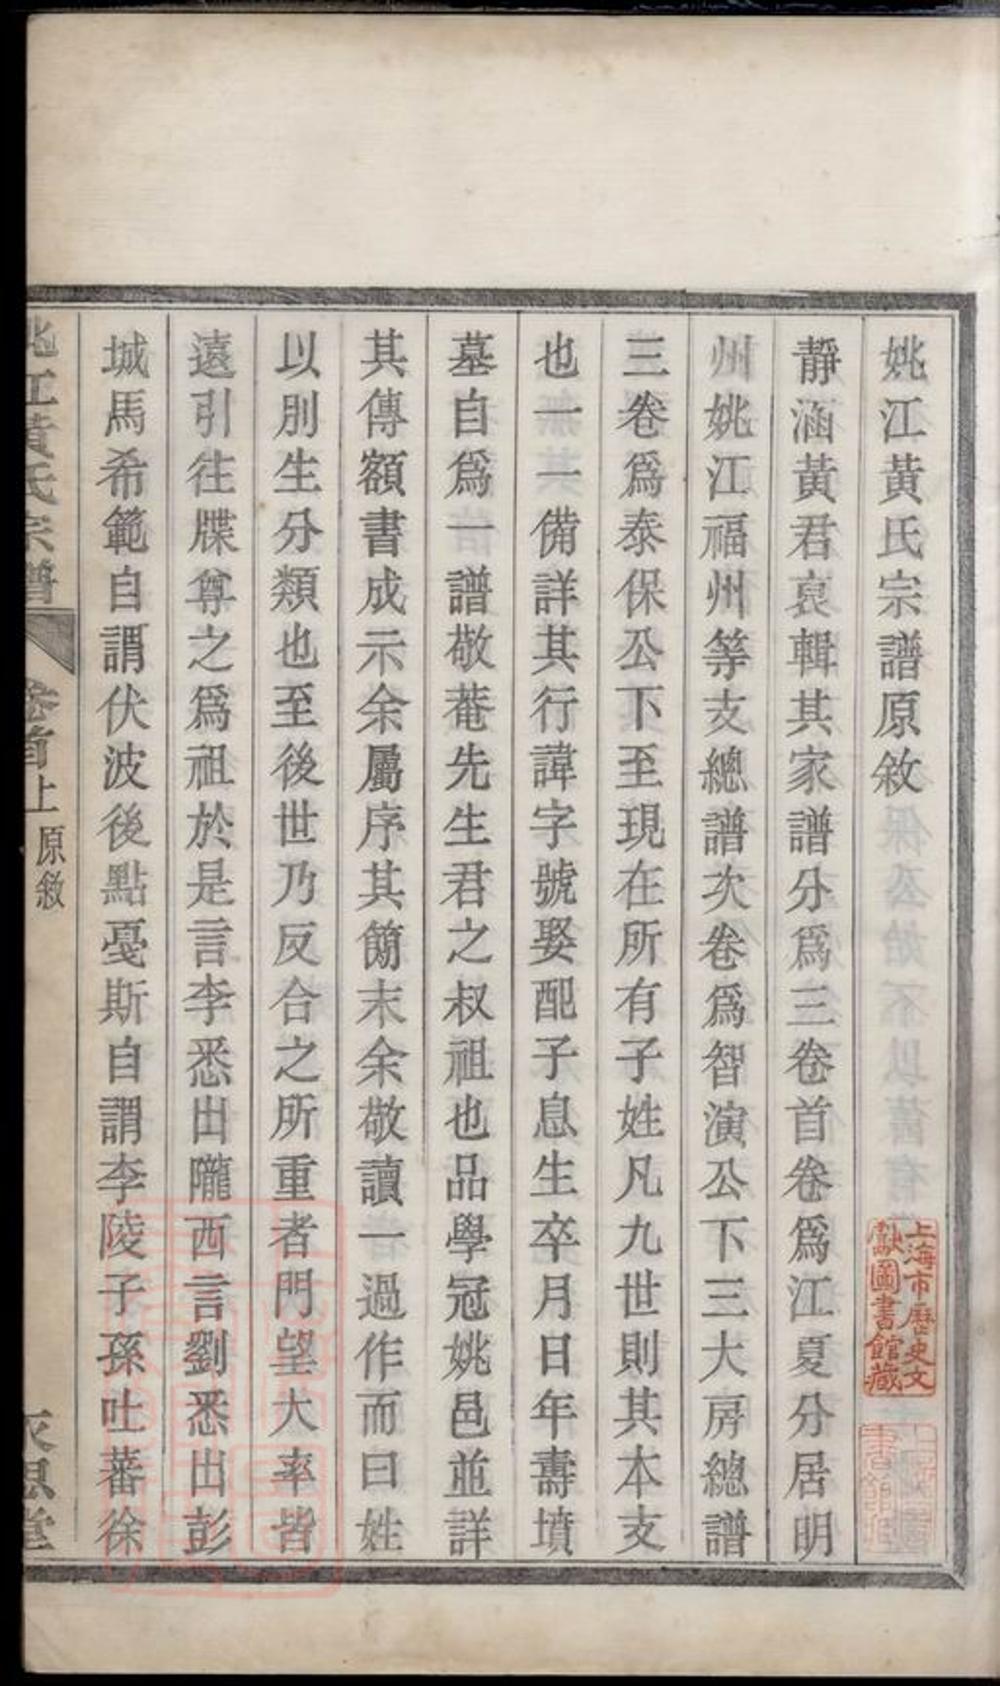 姚江黃氏宗譜原敘
靜涵黃君裒輯其家譜分爲三卷首卷爲江夏分居明
州姚江福州等支總譜次卷爲智演公下三大房總譜
三卷爲泰保公下至現在所有子姓凡九世則其本支
也一一備詳其行諱字號娶配子息生卒月日年壽墳
墓自爲一譜敬菴先生君之叔祖也品學冠姚邑並詳
其傳額書成示余屬序其簡末余敬讀一過作而曰姓
以別生分類也至後世乃反合之所重者門望大率皆
遠引往牒尊之爲祖於是言李悉出隴西言劉悉出彭
城馬希範自謂伏波後點戞斯自謂李陵子孫吐蕃徐
姚江黃氏宗譜
卷首上
原敘
上海市歷史文
獻圖書館藏